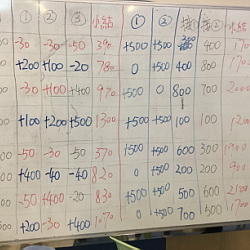 ① ② ③ 小結 ① ②
00 -30 -30 -50 390 +500 +500 400 170
+200 +100 -20 780 0 +500 400 800 1700
-30 +100 +400 970 +500 0 800 700 200
00 +100 +200 +500 1300 +500 +500 100 100 120
00 -50 -30 -50 370 +500 +500 600 300 1900
00 +400 -40 -40 820 0 +500 600 200
00 -50 +400 -20 830 +500 0 500 600 2100
500 +200 -30 +400 1070 0 +500 700 500 1700